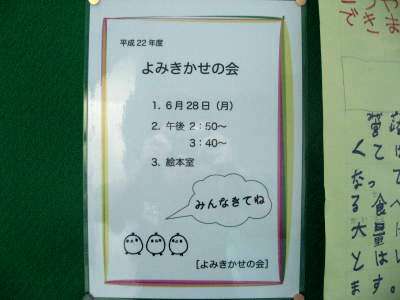 平成22年度
よみきかせの会
1. 6月28日（月）
2. 午後 2：50～
3：40～
3. 絵本室
みんなきてね
[よみきかせの会]
くては
なって
る食べ
大量に
とはい
ます。